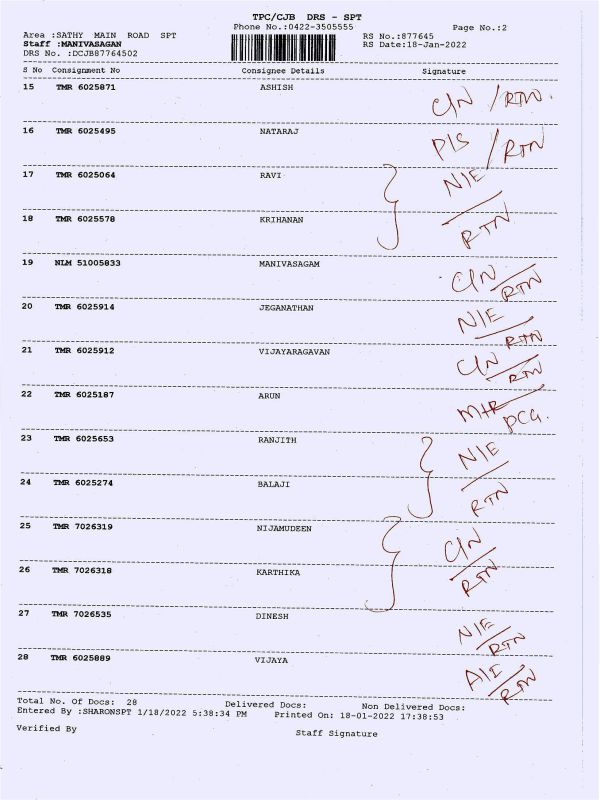 TPC/CJB DRS - SPT
Phone No.:0422-3505555 Page No.:2
Area :SATHY MAIN ROAD SPT RS No.:877645
Staff :MANIVASAGAN RS Date:18-Jan-2022
DRS No. :DCJB87764502
S No Consignment No Consignee Details Signature
15 TMR 6025871 ASHISH C/N /RTN.
16 TMR 6025495 NATARAJ P/S /RTN
17 TMR 6025064 RAVI N/E
18 TMR 6025578 KRIHANAN RTN
19 NLM 51005833 MANIVASAGAM C/N RTN
20 TMR 6025914 JEGANATHAN N/E RTN
21 TMR 6025912 VIJAYARAGAVAN C/N RTN
22 TMR 6025187 ARUN PCG.
23 TMR 6025653 RANJITH N/E
24 TMR 6025274 BALAJI RTN
25 TMR 7026319 NIJAMUDEEN C/N
26 TMR 7026318 KARTHIKA RTN
27 TMR 7026535 DINESH N/E RTN
28 TMR 6025889 VIJAYA A/E RTN
Total No. Of Docs: 28 Delivered Docs: Non Delivered Docs:
Entered By :SHARONSPT 1/18/2022 5:38:34 PM Printed On: 18-01-2022 17:38:53
Verified By Staff Signature